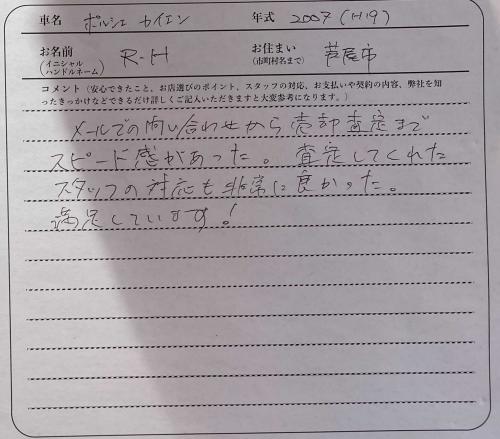 車名 ポルシェ カイエン 年式 2007(H19)
お名前 (イニシャル ハンドルネーム) R-H お住まい (市町村名まで) 芦屋市
コメント(安心できたこと、お店選びのポイント、スタッフの対応、お支払いや契約の内容、弊社を知
ったきっかけなどできるだけ詳しくご記入いただきますと大変参考になります。)
メールでの問い合わせから売却査定まで
スピード感があった。査定してくれた
スタッフの対応も非常に良かった。
満足しています!